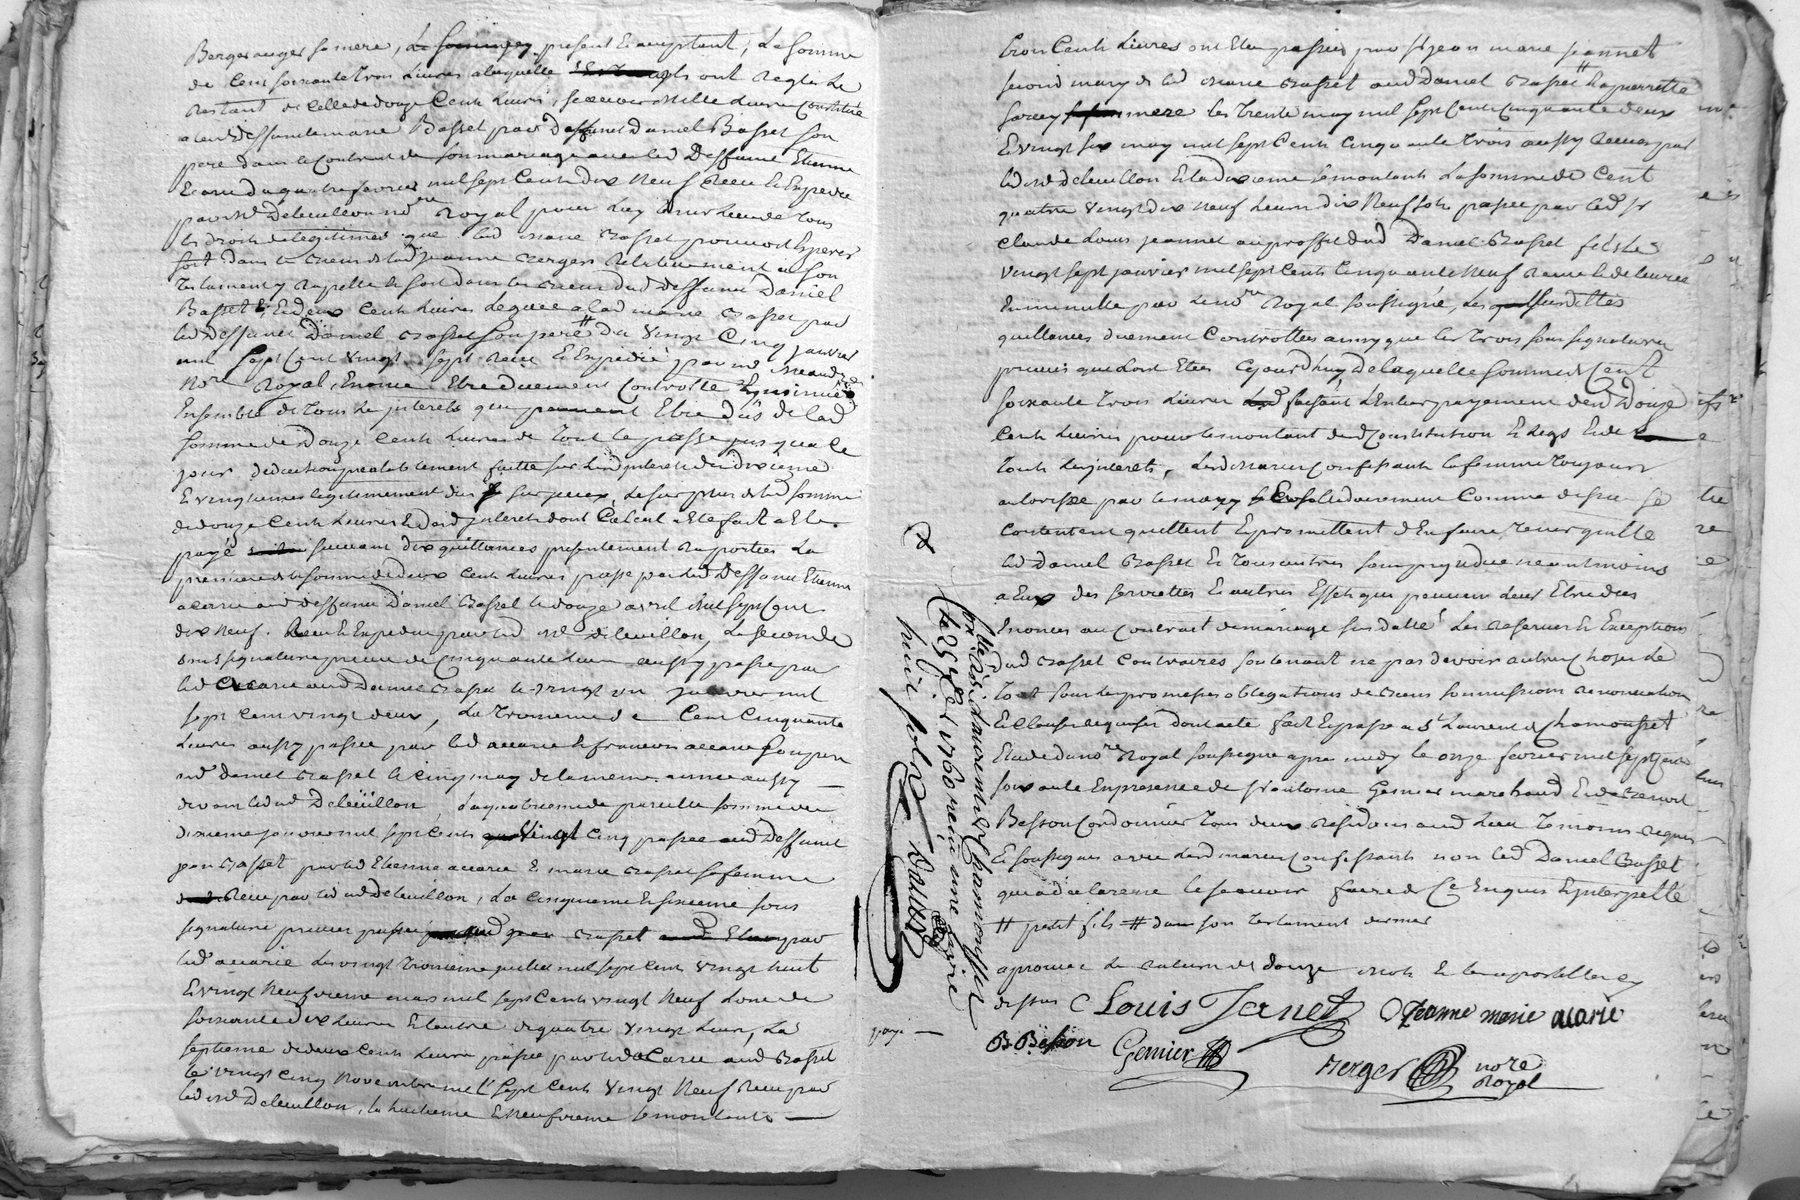 Berger auger sa mere, present et acceptant, La somme
de Cent soixante trois Livres a laquelle ont reglé Le
Restant de celle de douze Cents Livres, scavoir Mille Livres Constituée
a lad deffunte marie Basset par deffunt Daniel Basset son
pere dans le Contrat de son mariage avec led Deffunt Etienne
Acarie du quatre fevrier mil sept Cents dix Neuf Receu et Expedié
par Md Deleuillon nore Royal pour luy tenir lieu de tous
les droits de legitimes que lad marie Basset pouvoit Esperer
soit dans la succes de lad Jeanne Berger Relativement a son
Testament y rapellé soit dans la succes dud deffunt Daniel
Basset, Et deux Cents Livres leguée a lad marie Basset par
led Deffunt Daniel Basset son pere # du Vingt Cinq janvier
mil sept Cent Vingt sept Receu et Expedié par Md
Nore Royal, Enoncé Etre duement Controllé Et insinué
Ensemble de tous les jnterets qui peuvent Etre dus de lad
somme de Douze Cents Livres de tout le passé jusqua ce
jour deduction prealablement faitte sur lesd jnterets du dixieme
Et vingtiemes legitimement dus sur jceux, Le surplus de lad somme
de douze Cents Livres Et desd jnterets dont Calcul a Eté fait a Eté
payé suivant dix quittances presentement raportées La
premiere de la somme de deux Cents Livres passé par led Deffunt Etienne
acarie aud deffunt Daniel Basset le douze avril mil sept Cent
dix neuf. Receu Et Expedié par led Md Deleuillon, La seconde
sous signature privée de Cinquante Livres aussy passée par
led Acarie aud Daniel Basset le vingt un janvier mil
sept Cent vingt deux, La troisieme de Cent Cinquante
Livres aussy passée par led accarie et francois accarie son pere
aud daniel Basset le Cinq may de la meme année aussy
devant led Md Deleuillon La quatrieme de pareille somme du
dixieme janvier mil sept Cents Vingt Cinq passée aud Deffunt
jean Basset par led Etienne acarie Et marie Basset sa femme
Receu par led Md Deleuillon, La Cinquieme Et sixieme sous
signature privées passées Basset par
led acarie Les vingt troisieme juillet mil sept Cents vingt huit
Et vingt Neufvieme mars mil sept Cents vingt Neuf L'une de
soixante dix Livres Et L'autre de quatre Vingt Livres, La
septieme de deux Cents Livres passée par led aCarie aud Basset
le vingt Cinq Novembre mil sept Cents Vingt Neuf Receu par
led Md Deleuillon, La huitieme Et Neufvieme se montants
trois Cents Livres ont Eté passées par sr jean marie jeannet
second mary de lad marie Basset aud Daniel Basset # La pierrette
mere les trente may mil sept Cents Cinquante deux
Et vingt six may mil sept Cents Cinquante trois aussy Receues par
led Md Deleuillon Et la dixieme se montants La somme de Cent
quatre Vingt dix Neuf Livres dix Neuf sols passée par led sr
Claude Louis jeannet au proffit dud Daniel Basset fils Le
vingt sept janvier mil sept Cents Cinquante Neuf Receue Et delivrée
En minutte par Le nore Royal soussigné, Les susdittes
quittances duement Controllées ainsy que les trois sous signatures
privées que dont Etes Cejourd'huy de laquelle somme de Cent
soixante trois Livres faisant L'Entier payement desd Douze
Cents Livres pour le montant dud Constitution Et Legs Et de
tous les jnterets, Lesd mariez Confessants La femme toujours
autorisée par le mary Et solidairement Comme dessus se
Contentent quittent Et promettent d'En faire tenir quitte
led Daniel Basset Et tous autres sans prejudice neantmoins
a Eux des serviettes Et autres Effets qui peuvent leur Etre dus
Enoncés au Contract de mariage sus datté Les Reserves Et Exceptions
dud Basset Contraires soutenant ne pas devoir autres Choses de
tout sous les promesses obligations de Biens soumissions Renonciation
Et Clauses requises dont acte fait Et passé a St Laurent de Chamousset
Etude du nore Royal soussigné apres midy le onze fevrier mil sept Cents
soixante En presence de sr antoine Gemier marchand Et de Benoit
Besson Cordonnier tous deux residants aud Lieu temoins requis
Et soussignés avec Lesd mariez Confessants non led Daniel Basset
qui a declaré ne le scavoir faire de Ce Enquis Et jnterpellé
# petit fils # dans son testament dernier
aprouvé La rature de douze mots Et les apostilles cy
dessus C Louis Janet Jeanne marie acarie
B Besson Gemier Berger nore
Royal
Collé a St Laurent de Chamousset
le 25 fev 1760 reçu une livre
huit sols
payé